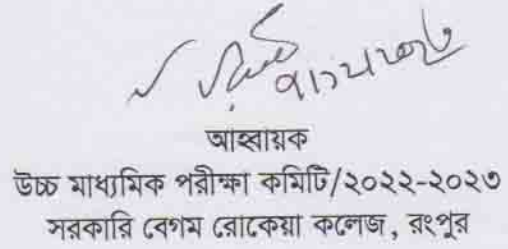 আহ্বায়ক
উচ্চ মাধ্যমিক পরীক্ষা কমিটি/২০২২-২০২৩
সরকারি বেগম রোকেয়া কলেজ, রংপুর